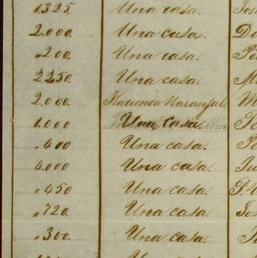 1325 Una casa. Jos
2.000. Una casa. D
"200. Una casa. Pe
2250. Una casa. M
2.000. Hacienda Naranjal. M
1.000 Una casa. J
"400 Una casa. Pe
4.000 Una casa. Ju
"450 Una casa. P.
"720. Una casa. Jos
"300. Una casa. J